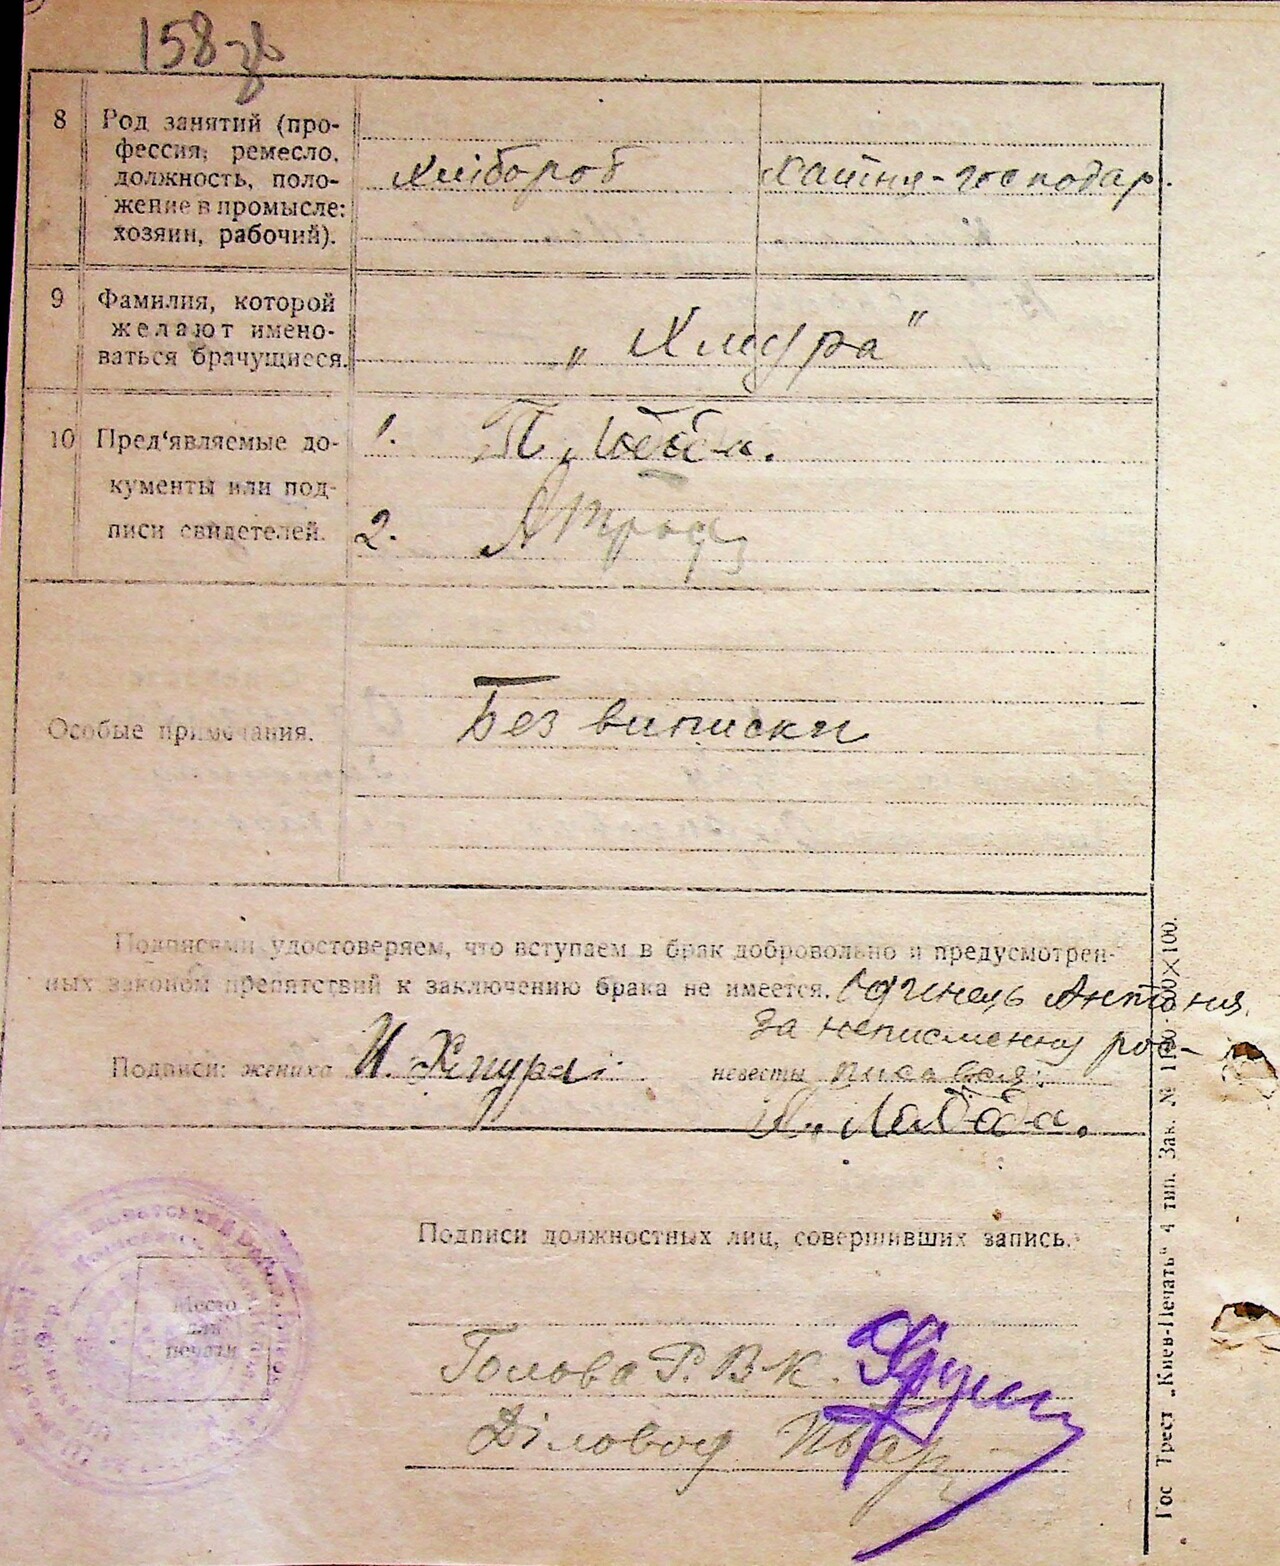 158-зв
8 Род занятий (про-
фессия, ремесло,
должность, поло-
жение в промысле:
хозяин, рабочий).
Хлібороб Хатня-господар.
9 Фамилия, которой
желают имено-
ваться брачущиеся.
„Хмура"
10 Пред'являемые до-
кументы или под-
писи свидетелей.
1. П. Лобода.
2.
Особые примечания.
Без виписки
Подписями удостоверяем, что вступаем в брак добровольно и предусмотрен-
ных законом препятствий к заключению брака не имеется. Одинець Антонія
за неписменну роз-
Подписи: жениха И. Хмура невесты писався:
П. Лобода.
Подписи должностных лиц, совершивших запись.
Место
для
печати
Голова Р.В.К.
Діловод
Гос Трест „Киев-Печать" 4 тип. Зак. №